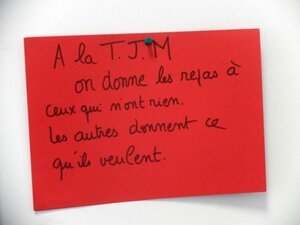 A la T.J.M
on donne les repas à
ceux qui n'ont rien.
Les autres donnent ce
qu'ils veulent.